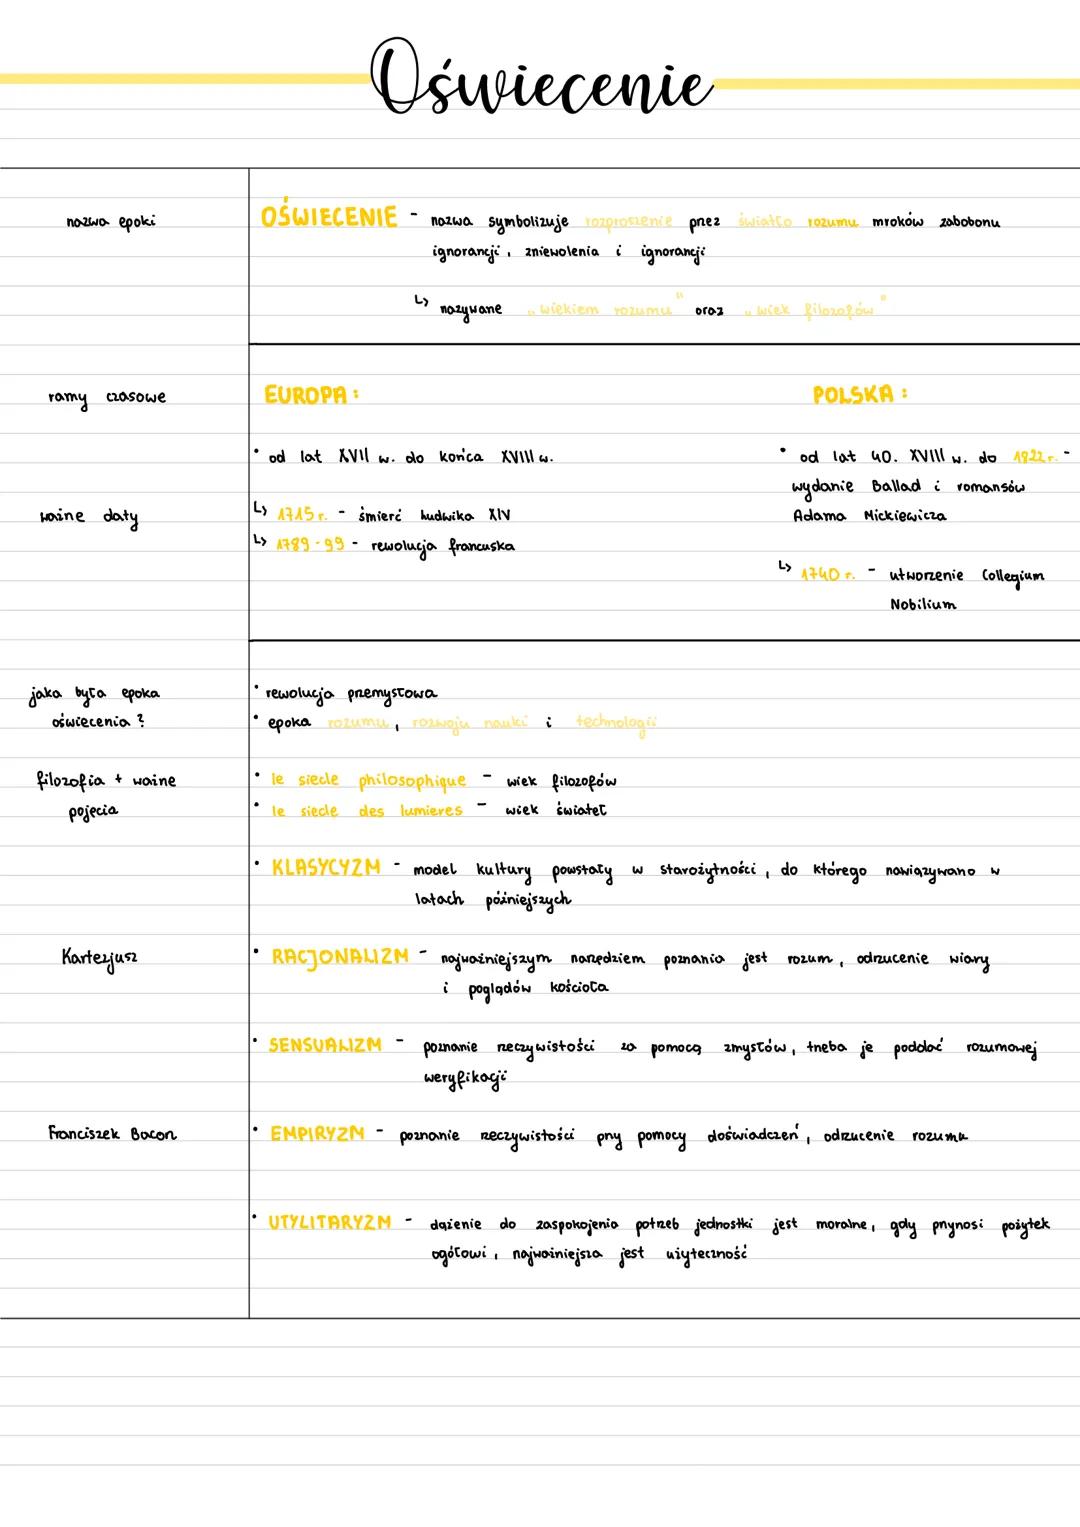 Oświecenie
nazwa epoki
OŚWIECENIE - nazwa symbolizuje rozproszenie przez światło rozumu mroków zabobonu
ignorancji, zniewolenia i ignorancji
↳ nazywane „wiekiem rozumu" oraz „wiek filozofów"
ramy czasowe
EUROPA:
POLSKA:
• od lat XVII w. do końca XVIII w.
• od lat 40. XVIII w. do 1822 r. -
wydanie Ballad i romansów
Adama Mickiewicza
ważne daty
↳ 1715 r. - śmierć Ludwika XIV
↳ 1789-99 - rewolucja francuska
↳ 1740 r. - utworzenie Collegium
Nobilium
jaka była epoka
oświecenia?
• rewolucja przemysłowa
• epoka rozumu, rozwoju nauki i technologii
filozofia + ważne
pojęcia
• le siecle philosophique - wiek filozofów
• le siecle des lumieres - wiek świateł
• KLASYCYZM - model kultury powstały w starożytności, do którego nawiązywano w
latach późniejszych
Kartezjusz
• RACJONALIZM - najważniejszym narzędziem poznania jest rozum, odrzucenie wiary
i poglądów kościoła
• SENSUALIZM - poznanie rzeczywistości za pomocą zmysłów, trzeba je poddać rozumowej
weryfikacji
Franciszek Bacon
• EMPIRYZM - poznanie rzeczywistości przy pomocy doświadczeń, odrzucenie rozumu
• UTYLITARYZM - dążenie do zaspokojenia potrzeb jednostki jest moralne, gdy przynosi pożytek
ogółowi, najważniejsza jest użyteczność